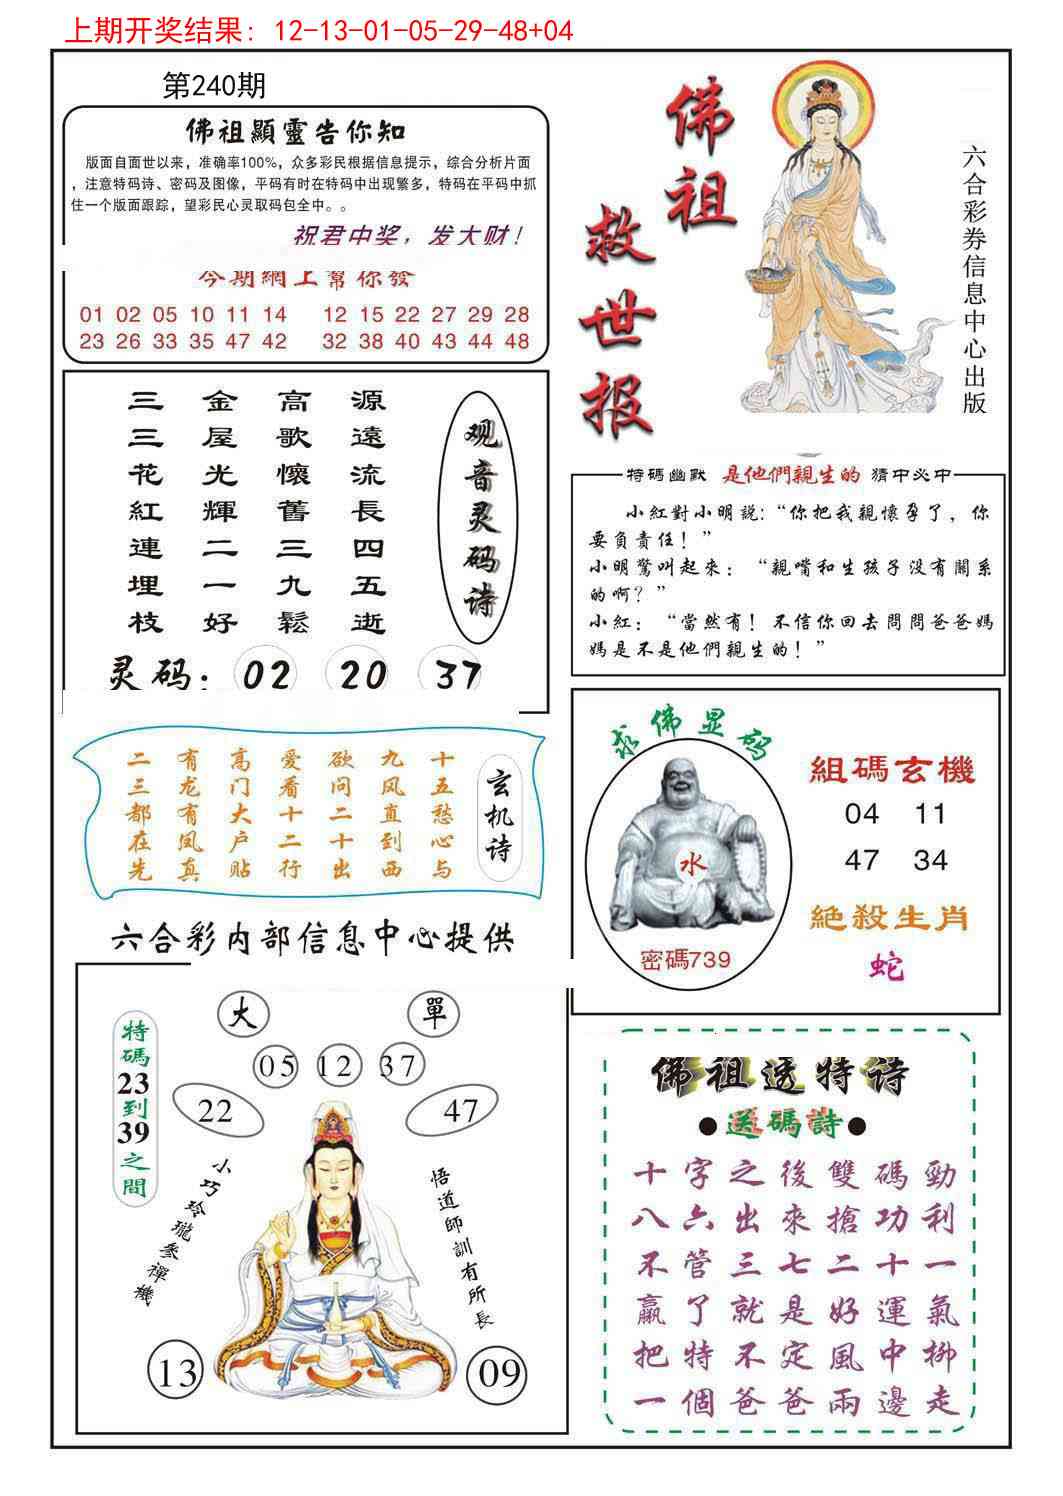 上期开奖结果：12-13-01-05-29-48+04
第240期
佛祖顯靈告你知
版面自面世以来，准确率100%，众多彩民根据信息提示，综合分析片面
，注意特码诗、密码及图像，平码有时在特码中出现繁多，特码在平码中抓
住一个版面跟踪，望彩民心灵取码包全中。。
祝君中奖，发大财！
今期網上幫你發
01 02 05 10 11 14 12 15 22 27 29 28
23 26 33 35 47 42 32 38 40 43 44 48
佛祖
救世报
六合彩券信息中心出版
三金高源
三屋歌遠
花光懷流
紅輝舊長
連二三四
埋一九五
枝好鬆逝
观音灵码诗
灵码：02 20 37
特碼幽默 是他們親生的 猜中必中
小紅對小明説：“你把我親懷孕了，你
要負責任！”
小明驚叫起來：“親嘴和生孩子没有關系
的啊？”
小紅：“當然有！不信你回去問問爸爸媽
媽是不是他們親生的！”
二有高爱欲九十
三龙门看问凤五
都有大十二直愁
在凤户二十到心
先真贴行出西与
玄机诗
求佛显码
水
密碼739
組碼玄機
04 11
47 34
絕殺生肖
蛇
六合彩内部信息中心提供
大 單
05 12 37
22 47
特碼23到39之間
小巧玲瓏參禪機
悟道師訓有所長
13 09
佛祖透特诗
●送碼詩●
十字之後雙碼勁
八六出來搶功利
不管三七二十一
贏了就是好運氣
把特不定風中柳
一個爸爸兩邊走